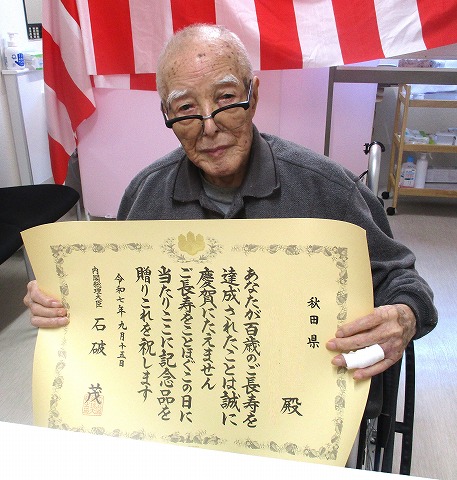 秋田県
殿
あなたが百歳のご長寿を
達成されたことは誠に
慶賀にたえません
ご長寿をことほぐこの日に
当たりここに記念品を
贈りこれを祝します
令和七年九月十五日
内閣総理大臣 石破 茂